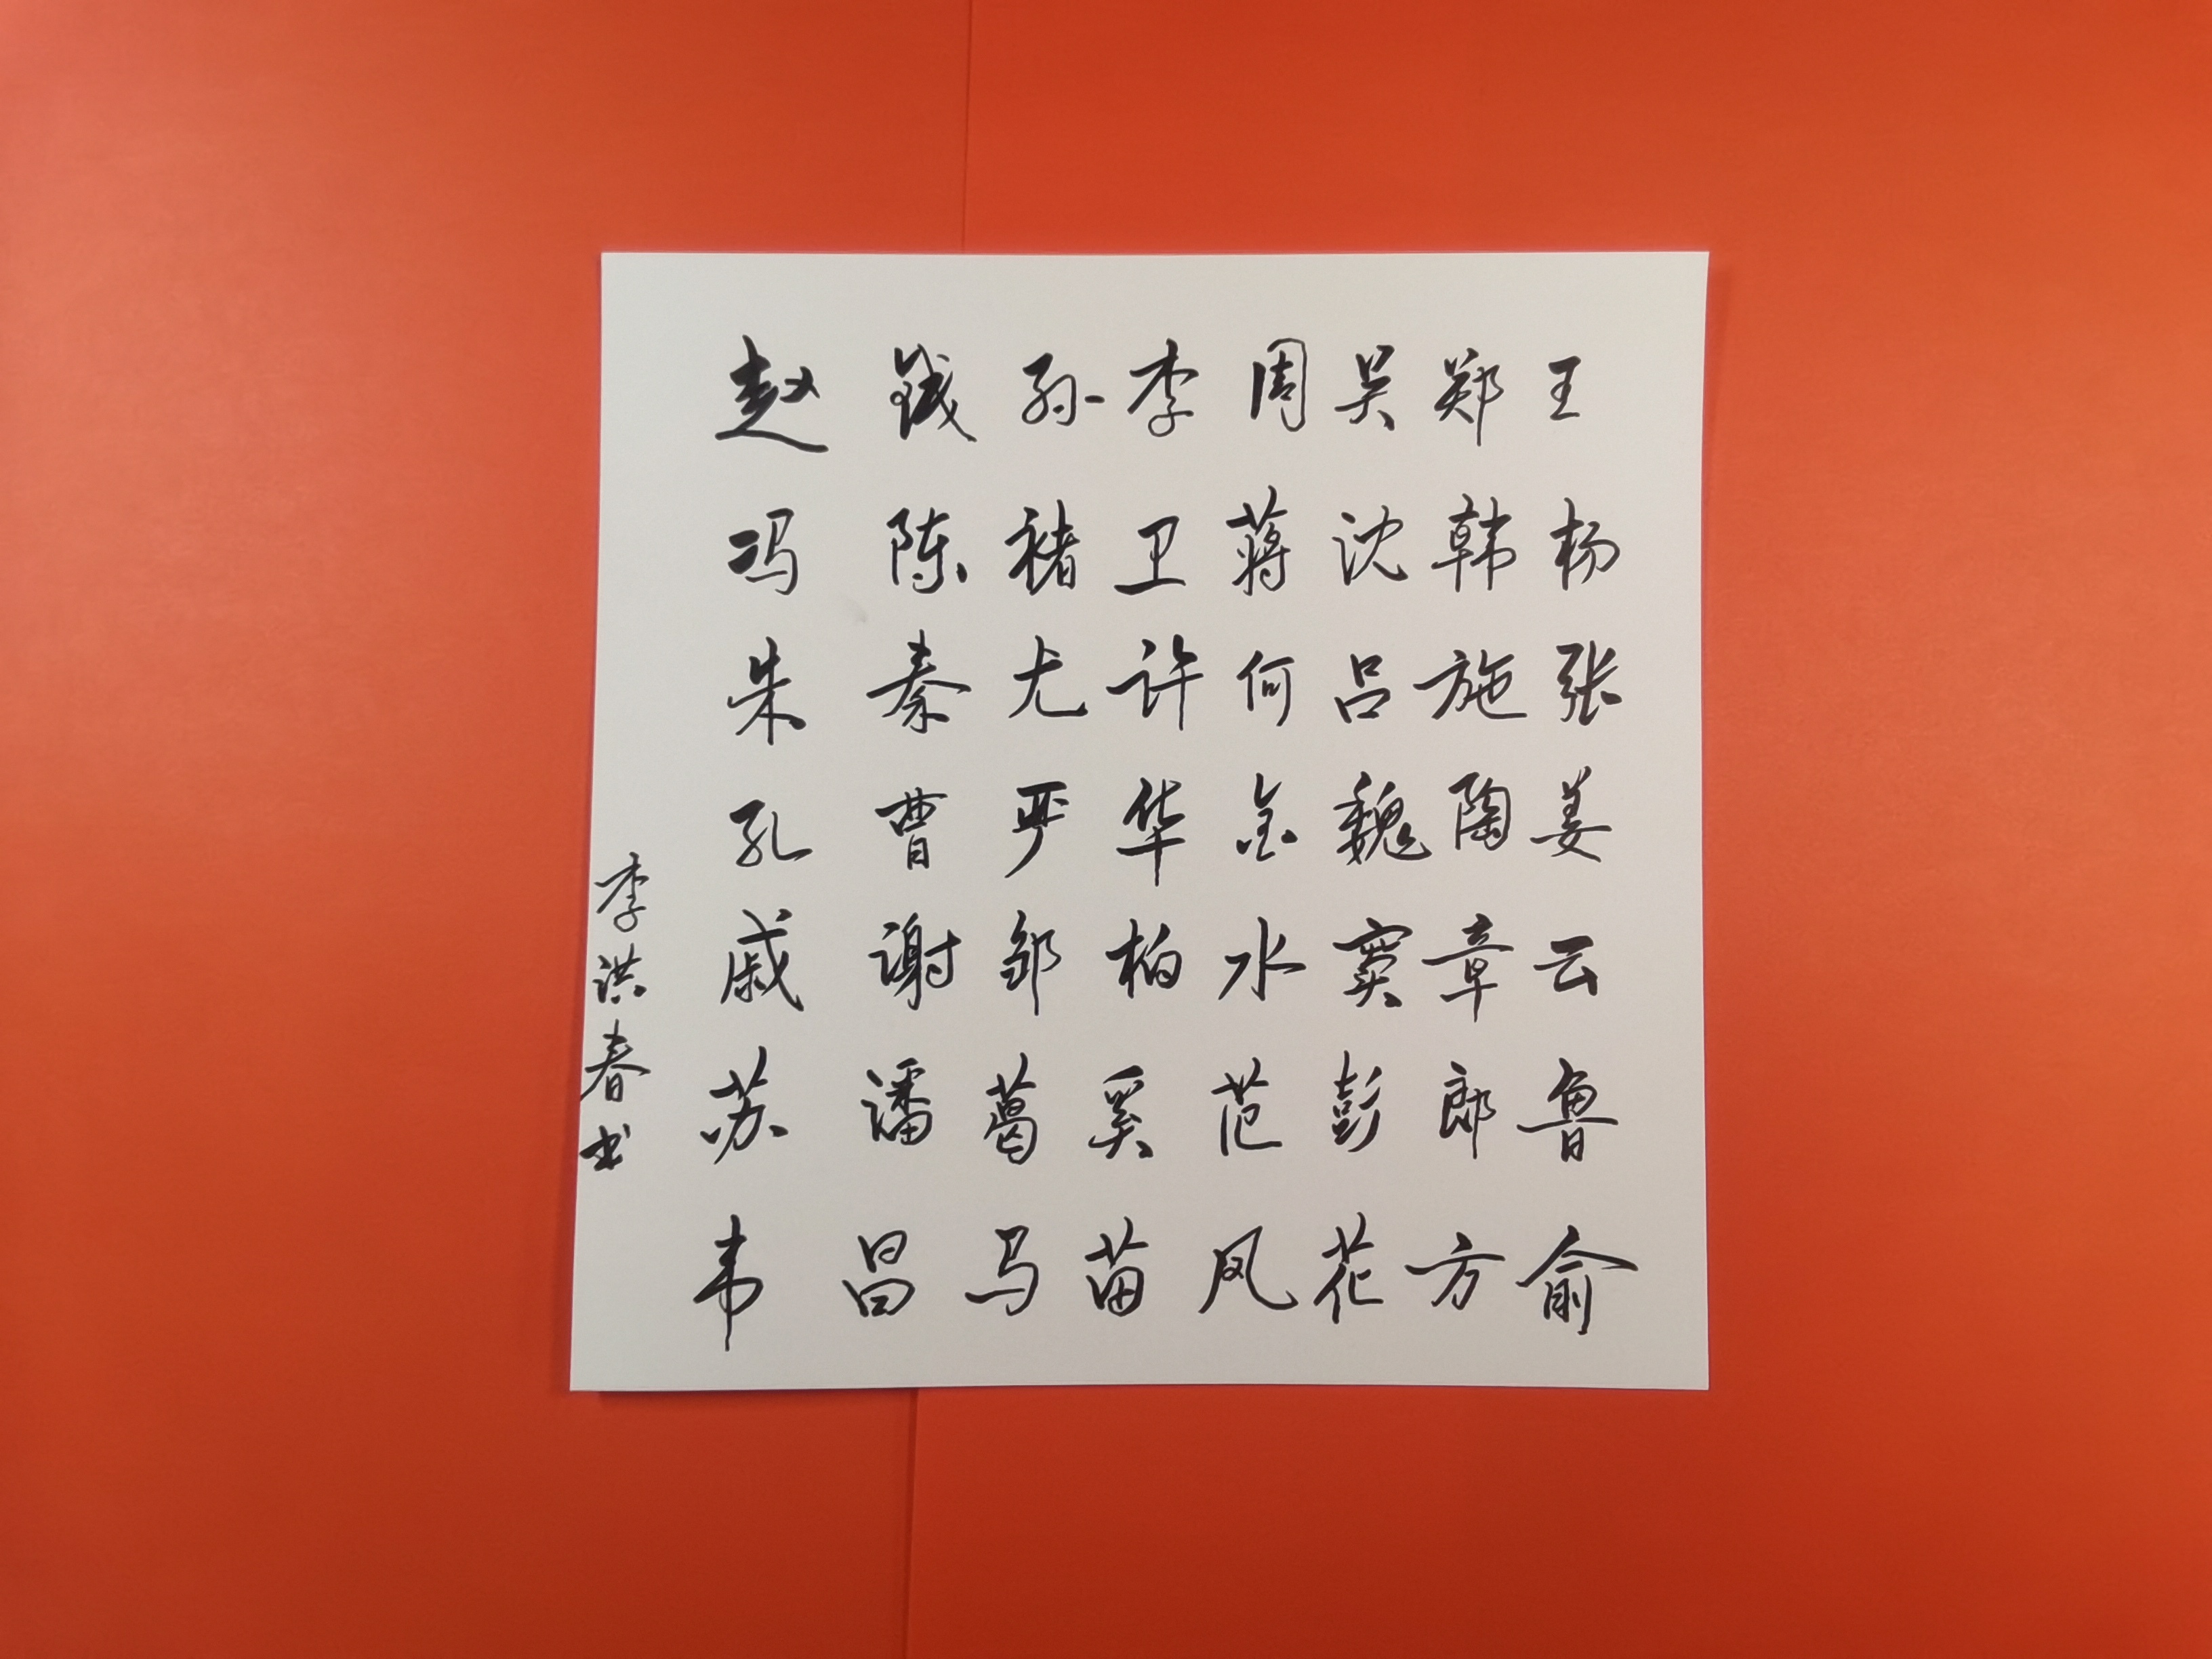 赵钱孙李周吴郑王
冯陈褚卫蒋沈韩杨
朱秦尤许何吕施张
孔曹严华金魏陶姜
戚谢邹柏水窦章云
苏潘葛奚范彭郎鲁
韦昌马苗凤花方俞
李洪春书